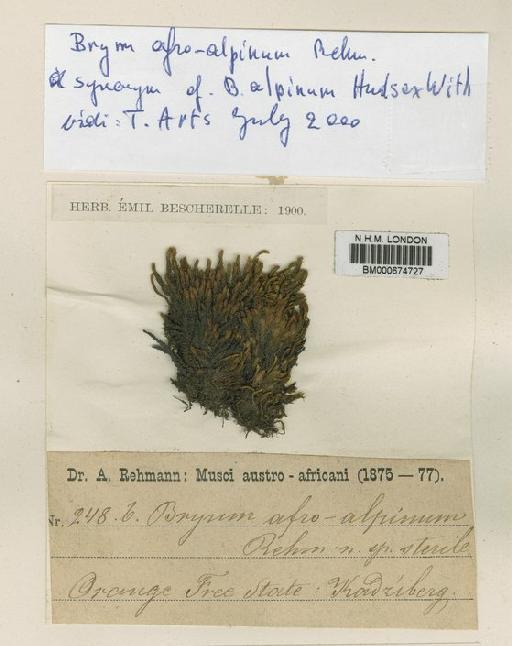 Bryum afro-alpinum Rehm.
A synonym of B. alpinum Huds ex With
vidi: T. Arts July 2000
HERB. ÉMIL BESCHERELLE: 1900.
N.H.M. LONDON
BM000874727
Dr. A. Rehmann: Musci austro-africani (1875—77).
Nr. 248. b. Bryum afro-alpinum
Rehm n. sp. sterile
Orange Free State: Kadziberg.